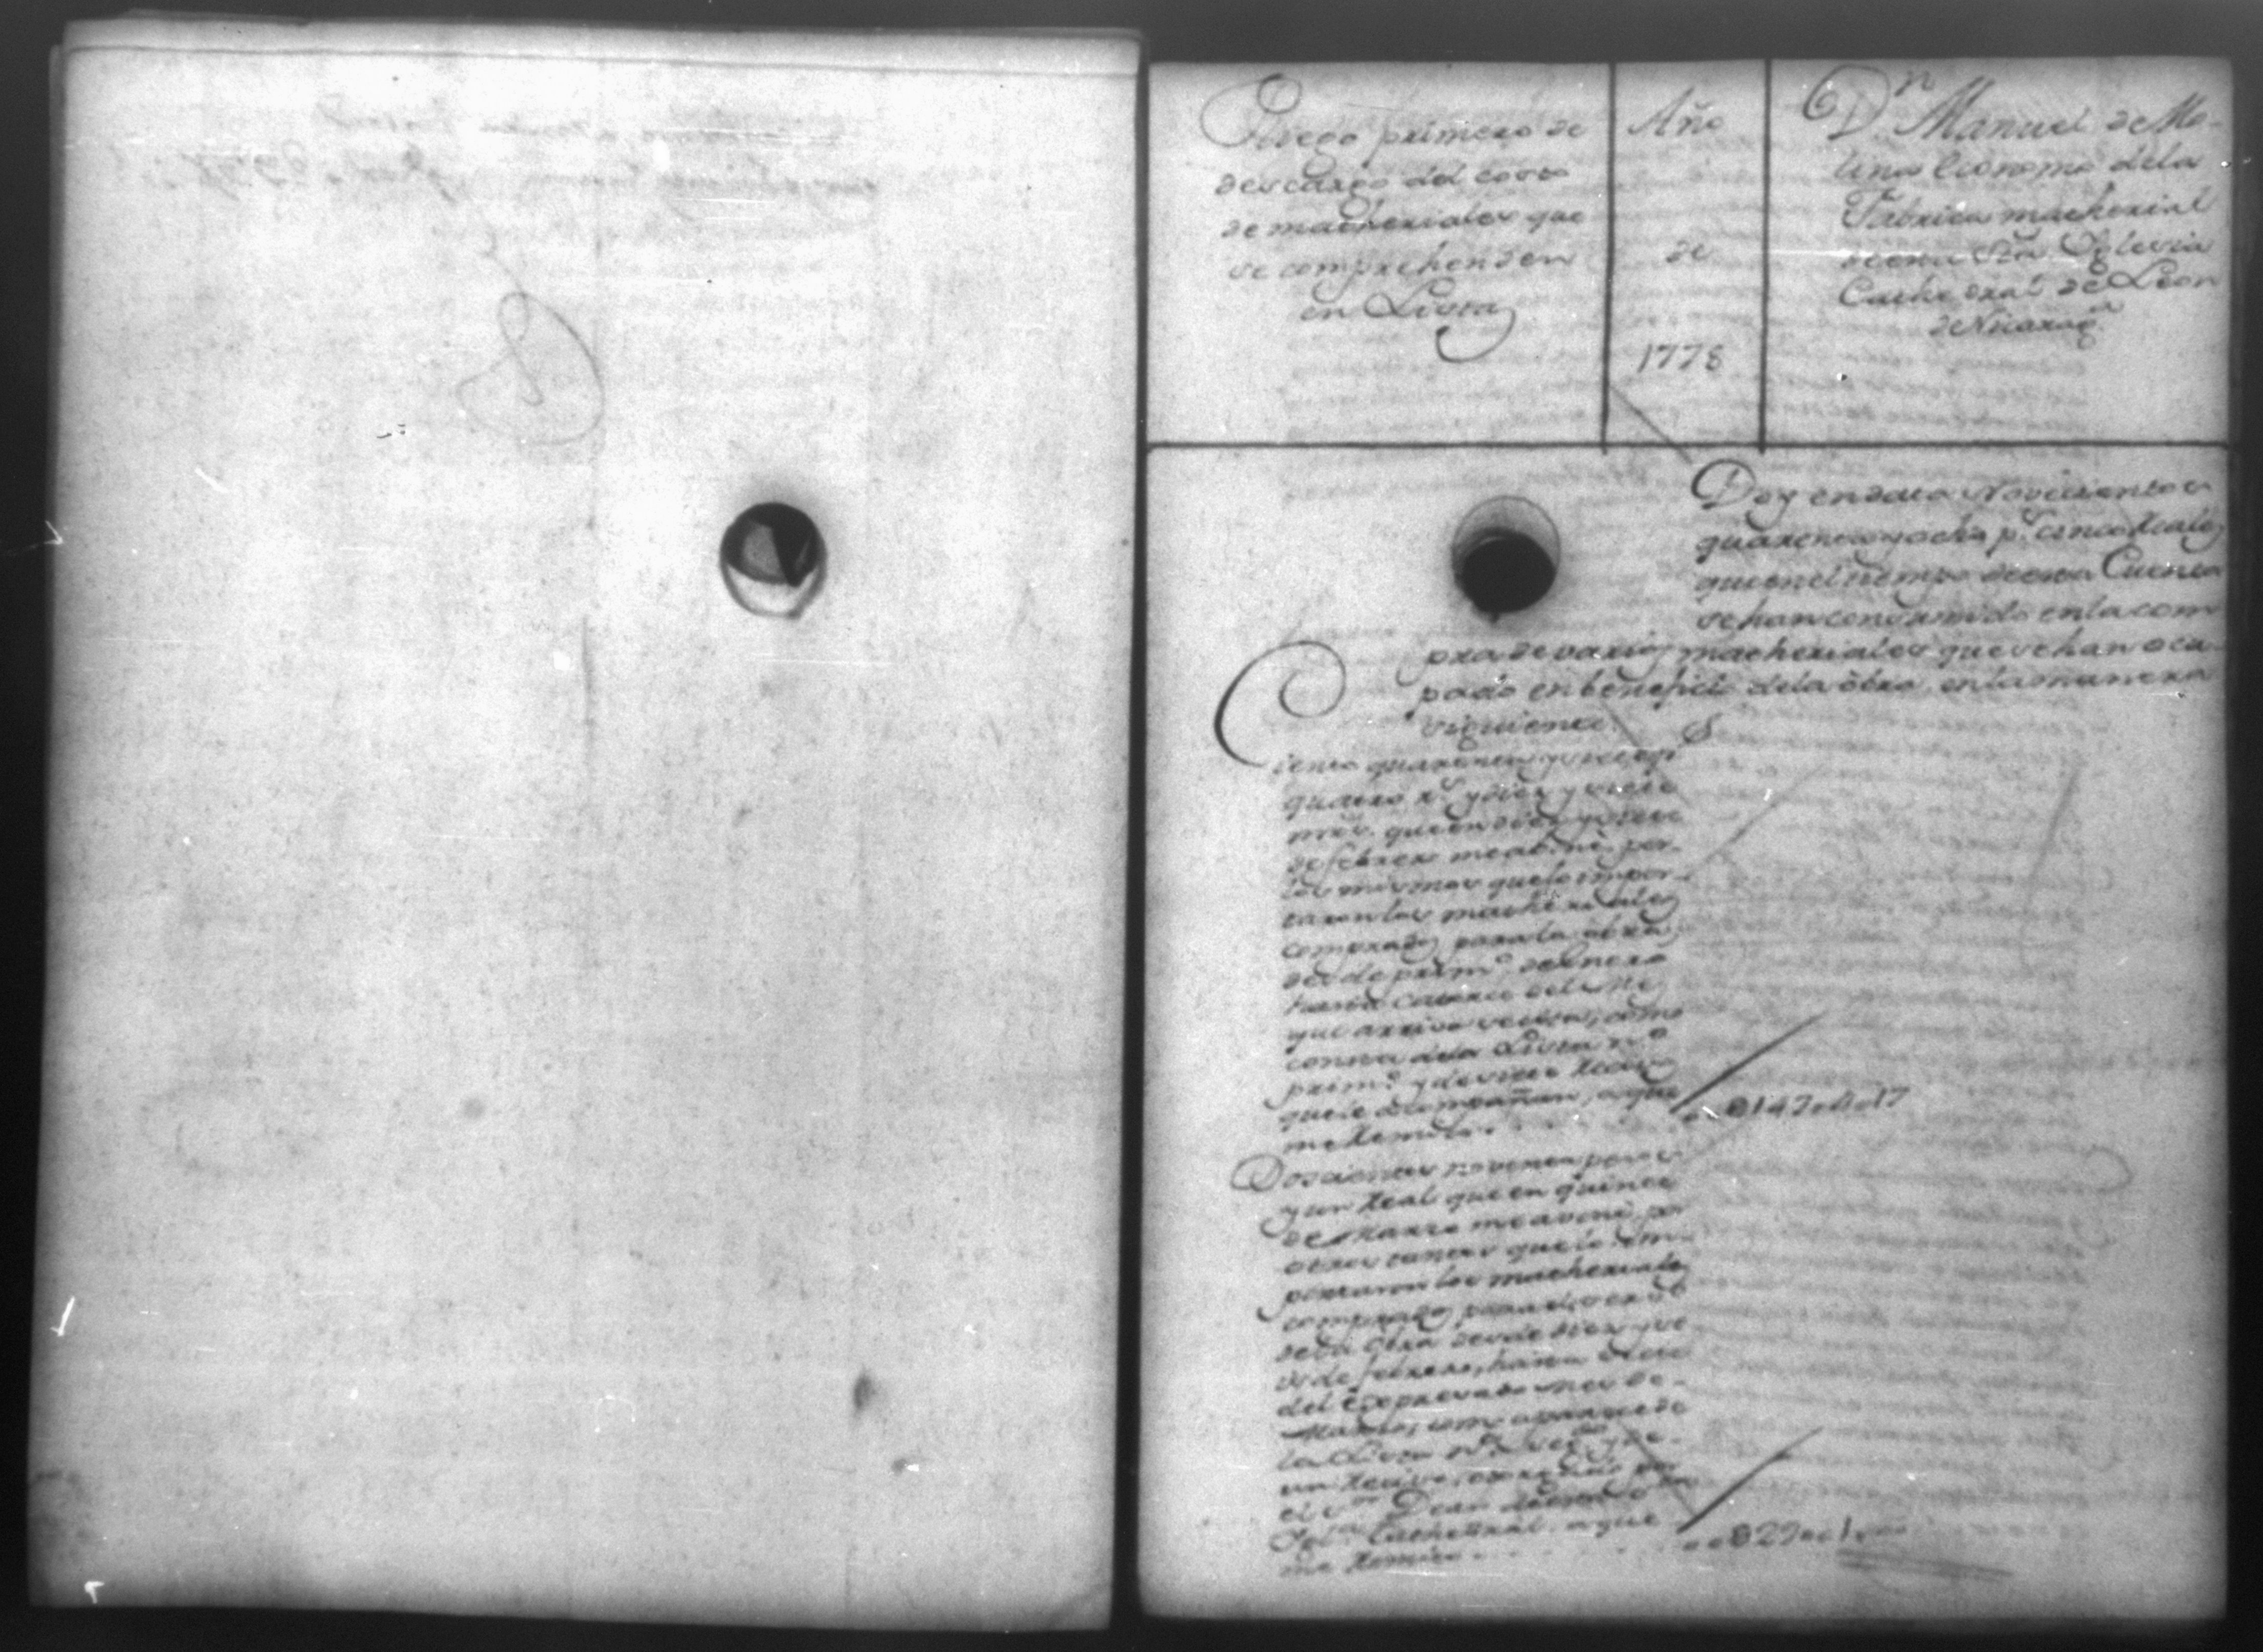 Pliego primero de
descargo del costo
de matheriales que
se comprehenden
en Lista
Año
de
1778
Dn. Manuel de Mo-
lina Economo dela
Fabrica matherial
de esta Sta. Yglesia
Cathedral de Leon
de Nicarag.a
Doy en data Novecientos
quarenta y ocho ps. cinco Reales
que en el tiempo de esta Cuenta
se han consumido en la com
pra de varios matheriales que se han ocu-
pado en beneficio dela obra, en la manera
siguiente.
Ciento quarenta y siete ps
quatro rs. y diez y siete
mrs. que en diez y siete
de febrero me aboné por
los mismos que lo impor-
taron los matheriales
comprados para la obra
desde prim.o de Enero
hasta Catorce del Me[s]
que arriva se cita, como
consta dela Lista n.o
prim.o y de siete Recivos
que le acompañan, a que
me Remito
0147.4.17
Doscientos noventa pesos
y un Real que en quince
de Marzo me aboné por
otros tantos que lo im-
portaron los matheriales
comprados para el
de la Obra desde diez y se
is de febrero, hasta
del expresado mes de
Marzo, como aparece de
la Lista n.o seg.do y de
un Recivo, por
el Sor. Dean de esta Sta.
Ygl.a Cathedral, a que
me Remito
0290.1